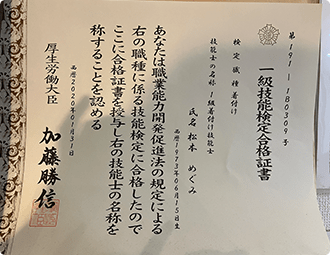 第191-1B0309号
一級技能検定合格証書
検定職種 着付け
技能士の名称 1級着付け技能士
氏名 松本 めぐみ
西暦1973年06月15日生
あなたは職業能力開発促進法の規定による
右の職種に係る技能検定に合格したので
ここに合格証書を授与し右の技能士の名称を
称することを認める
西暦2020年01月31日
厚生労働大臣 加藤勝信